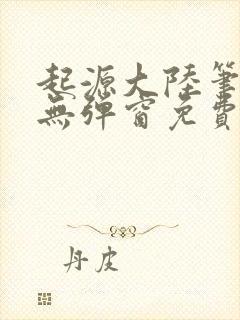 起源大陸筆
無彈窗免費
丹皮